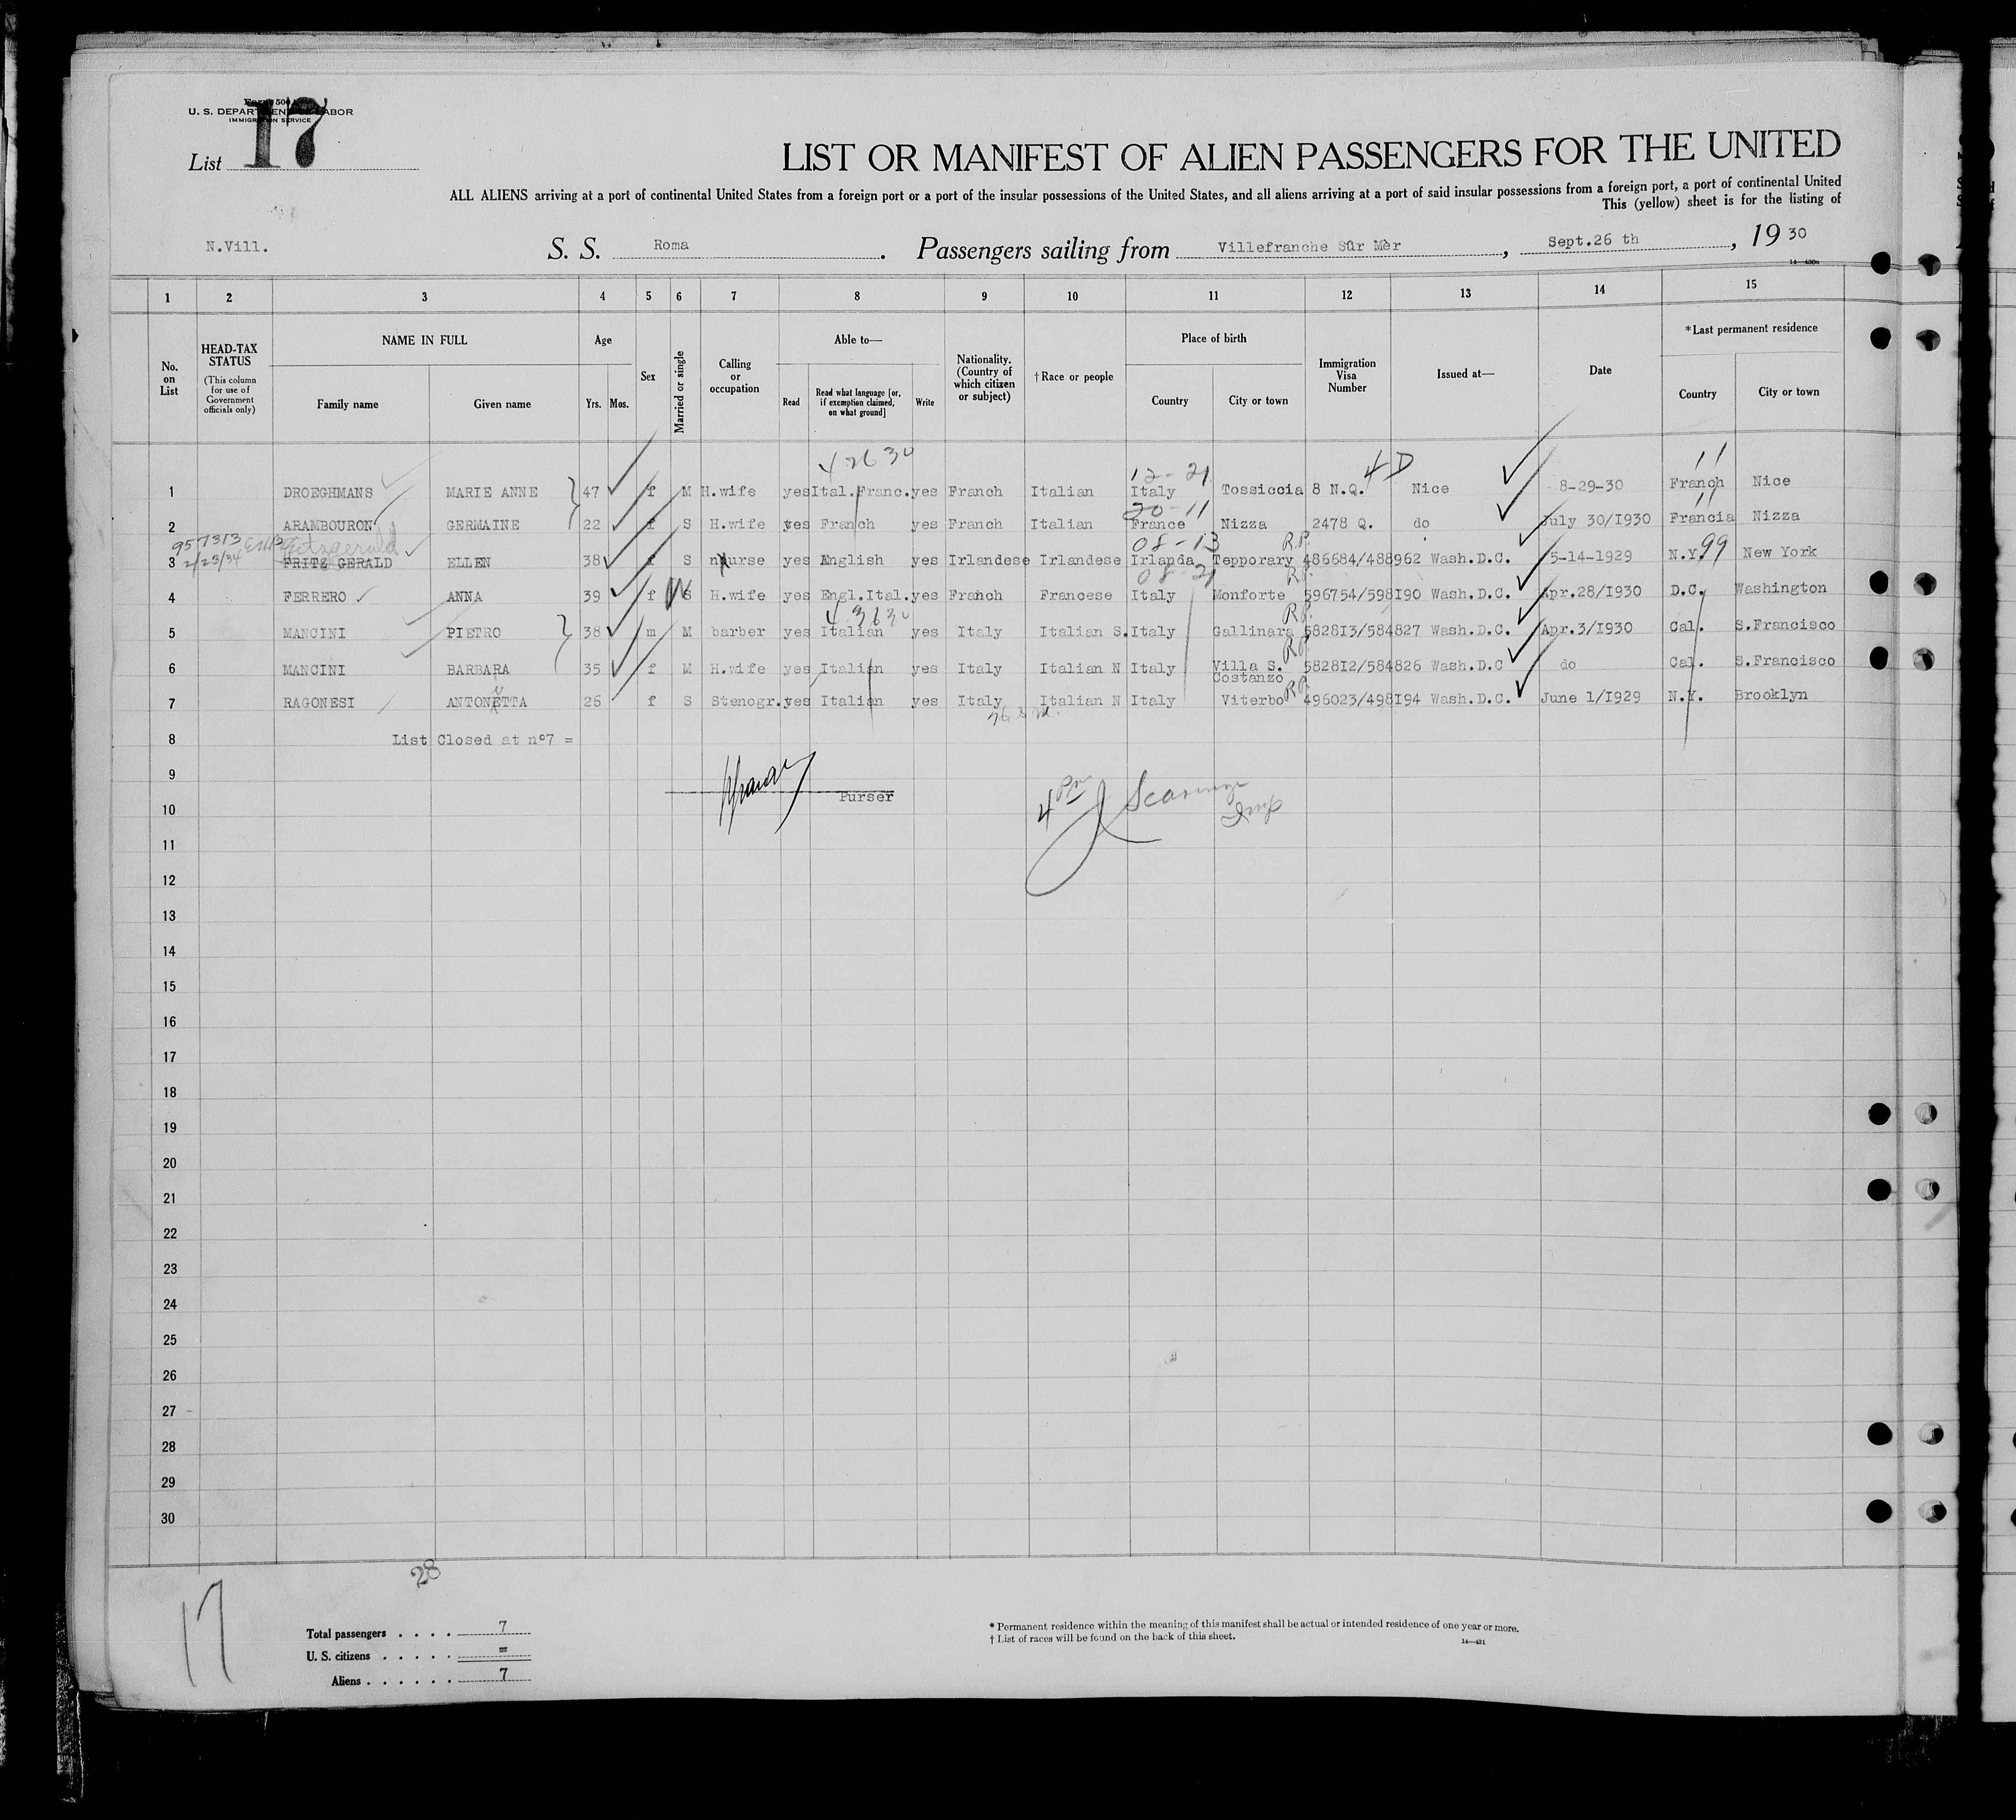 Form 500
U. S. DEPARTMENT OF LABOR
IMMIGRATION SERVICE
List 17
LIST OR MANIFEST OF ALIEN PASSENGERS FOR THE UNITED
ALL ALIENS arriving at a port of continental United States from a foreign port or a port of the insular possessions of the United States, and all aliens arriving at a port of said insular possessions from a foreign port, a port of continental United
This (yellow) sheet is for the listing of
N.Vill. S. S. Roma. Passengers sailing from Villefranche Sûr Mèr, Sept.26 th, 19 30
1 2 3 4 5 6 7 8 9 10 11 12 13 14 15
No. on List
HEAD-TAX STATUS (This column for use of Government officials only)
NAME IN FULL Family name Given name
Age Yrs. Mos.
Sex
Married or single
Calling or occupation
Able to— Read Read what language [or, if exemption claimed, on what ground] Write
Nationality. (Country of which citizen or subject)
†Race or people
Place of birth Country City or town
Immigration Visa Number
Issued at—
Date
*Last permanent residence Country City or town
4 2630 12-21 4D 11
1 DROEGHMANS MARIE ANNE 47 f M H.wife yes Ital.Franc. yes Franch Italian Italy Tossiccia 8 N.Q. Nice 8-29-30 Franch Nice
20-11 11
2 ARAMBOURON GERMAINE 22 f S H.wife yes Franch yes Franch Italian France Nizza 2478 Q. do July 30/1930 Francia Nizza
957313 Fitzgerald 08-13 R.P.
2/23/34
3 FRITZ GERALD ELLEN 38 f S nurse yes English yes Irlandese Irlandese Irlanda Tepporary 486684/488962 Wash.D.C. 5-14-1929 N.Y. 99 New York
08-21 R.P.
4 FERRERO ANNA 39 f S H.wife yes Engl.Ital. yes Franch Francese Italy Monforte 596754/598I90 Wash.D.C. Apr.28/1930 D.C. Washington
4 3630 R.P.
5 MANCINI PIETRO 38 m M barber yes Italian yes Italy Italian S. Italy Gallinara 5828I3/584827 Wash.D.C. Apr.3/1930 Cal. S.Francisco
R.P.
6 MANCINI BARBARA 35 f M H.wife yes Italian yes Italy Italian N Italy Villa S. Costanzo 5828I2/584826 Wash.D.C do Cal. S.Francisco
7 RAGONESI ANTONETTA 26 f S Stenogr. yes Italian yes Italy Italian N Italy Viterbo R.P. 496023/498I94 Wash.D.C. June 1/1929 N.Y. Brooklyn
8 List Closed at nº7 =
9
Purser
4 Pm
10
Insp
11
12
13
14
15
16
17
18
19
20
21
22
23
24
25
26
27
28
29
30
28
17
Total passengers . . . . 7
U. S. citizens . . . . . =
Aliens . . . . . . 7
* Permanent residence within the meaning of this manifest shall be actual or intended residence of one year or more.
† List of races will be found on the back of this sheet.
14—431